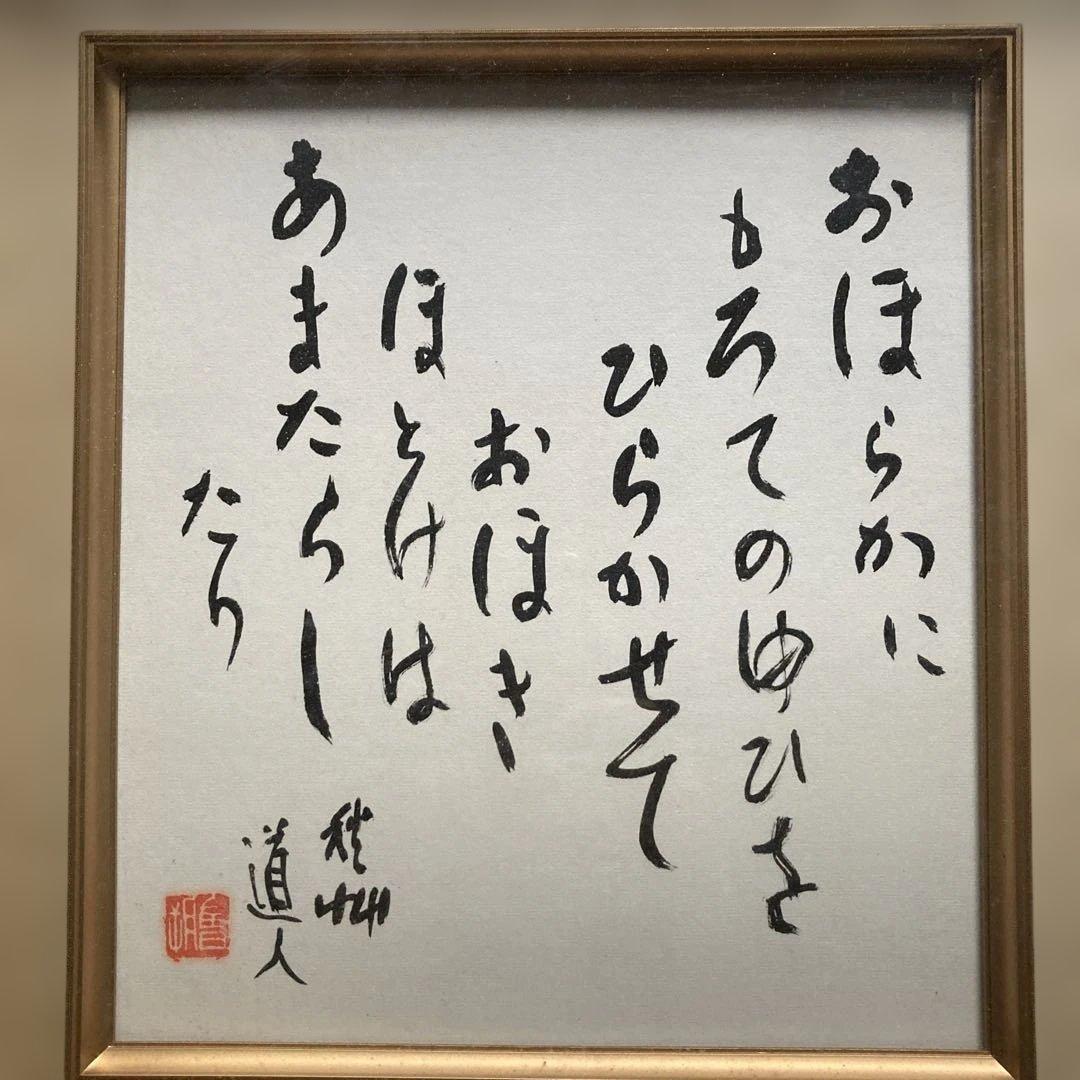 おほらかに
もろてのゆひを
ひらかせて
おほき
ほとけは
あまたらし
たり
秋艸
道人